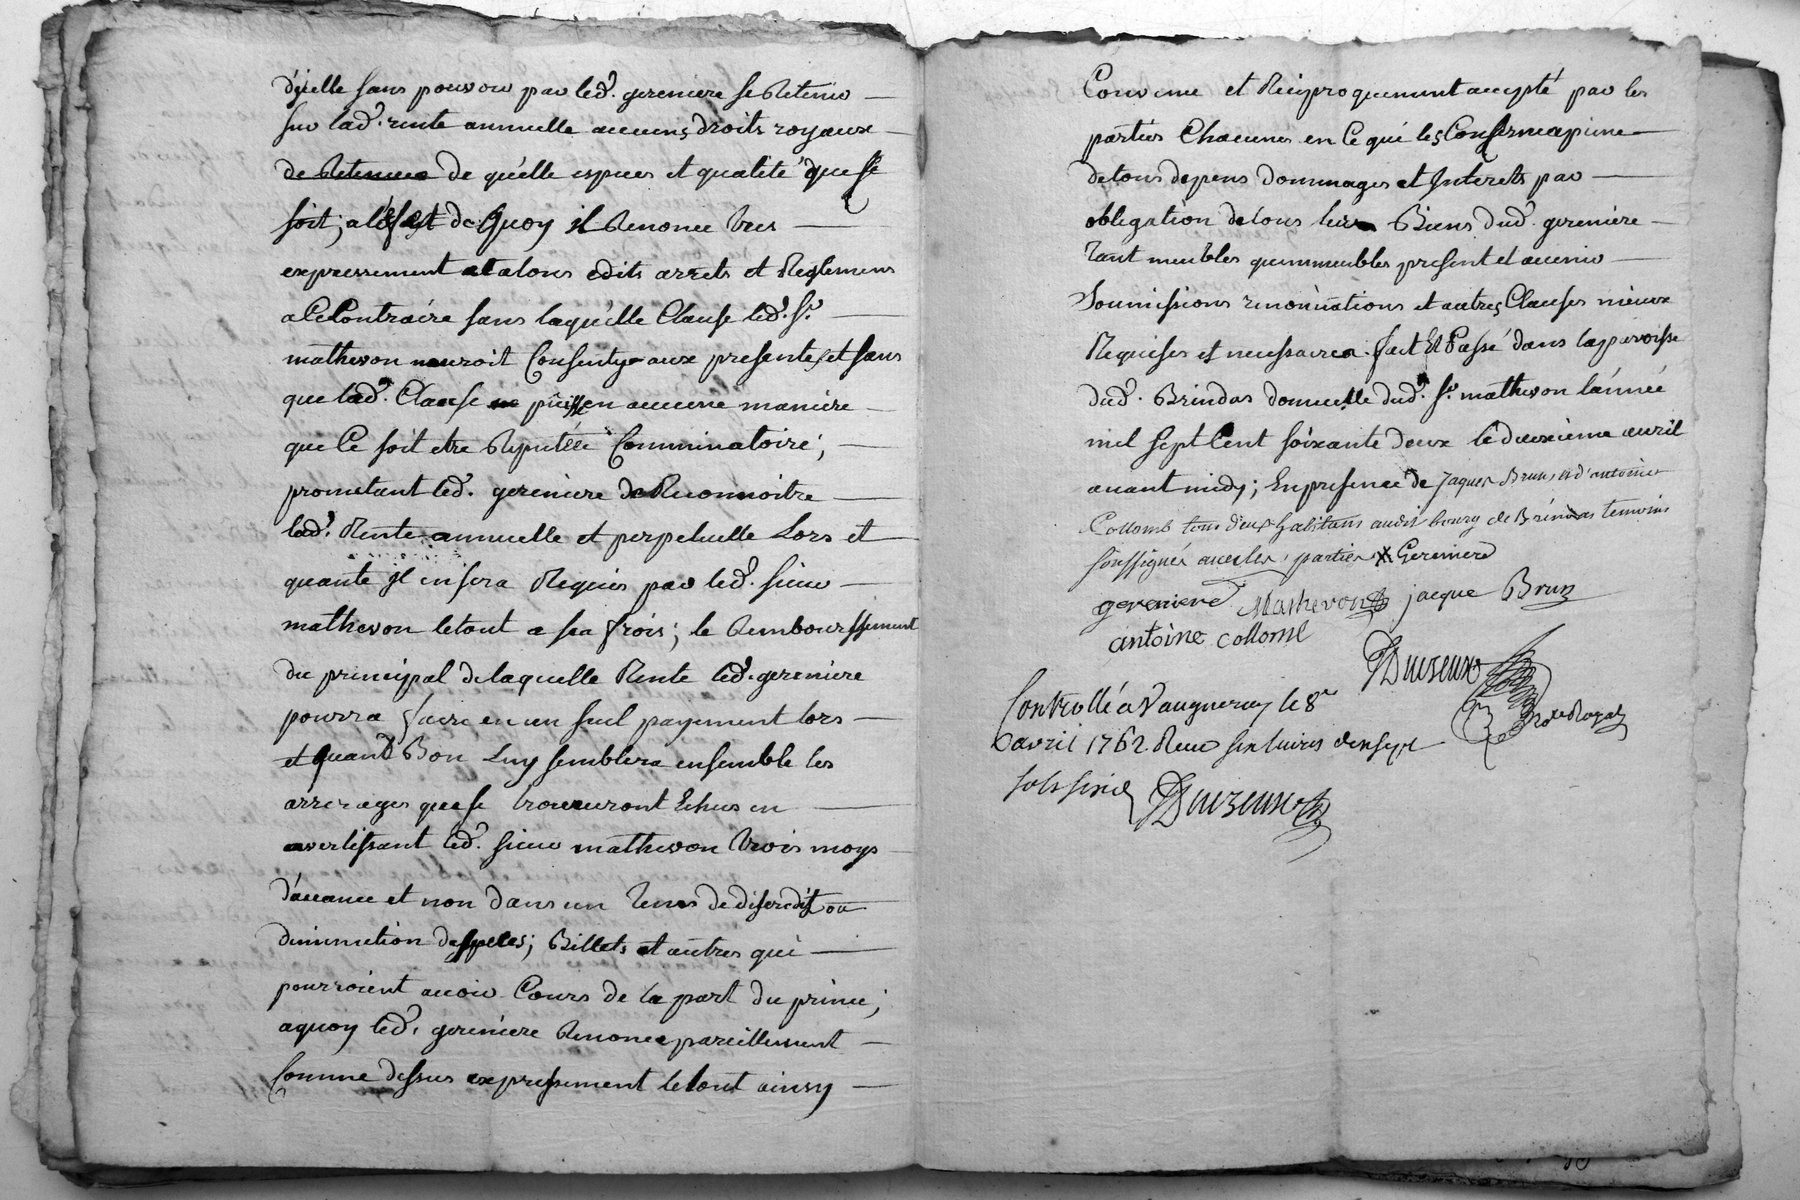 d'jcelle sans pouvoir par led. gereniere se Retenir
sur lad. rente annuelle aucuns droits royaux
de Retenues de qu'elle espece et qualité que se
soit; a l'effet de Quoy il Renonce tres
expressement a tous edits arrets et Reglemens
a Ce Contraire sans laqu'elle Clause led. Sr.
mathevon nauroit Consenty aux presentes, et sans
que lad. Clause puisse en aucune maniere
que Ce soit etre Reputée Comminatoire;
prometant led. gereniere de Reconnoitre
lad. Rente annuelle et perpetuelle Lors et
quante jl en sera Requis par led. sieur
mathevon letout a ses frois; le Rembourssement
du principal delaquelle Rente led. gereniere
pourra faire en un seul payement lors
et quand Bon Luy semblera ensemble les
arrerages que se trouveront Echus en
avertissant led. sieur mathevon trois moys
d'avance et non dans un tems de discredit ou
diminution despeces; Billets et autres qui
pourroient avoir Cours de la part du prince;
aquoy led. gereniere Renonce pareillement
Comme dessus expressement letout ainsy
Convenu et Reciproquement accepté par les
parties Chacunes en Ce qui les Conserne apeine
detous depens dommages et Interets par
obligation de tous les Biens dud. gereniere
tant meubles quimmeubles present et avenir
Soumissions renonciations et autres Clauses mieux
Requises et necessaires. fait Et Passé dans lapparoisse
dud. Brindas domicille dud. Sr. mathevon lannéé
mil sept Cent soixante deux le deuxieme avril
avant midy; En presence de jaques Brun et d'antoine
Collomb tous deux habitans audit bourg de Brindas temoins
soussignés avec les parties X Gereniere
gereniere Mathevon jacque Brun
antoine collomb
Duizeux
Controllé a Vaugneray le 8e
avril 1762 Reçu six livres dix sept
sols six d
Duizeux